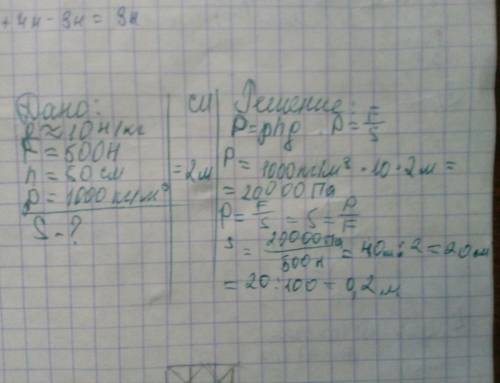 + 4н - 3н = 3н
Дано:
g ≈ 10 н/кг
F = 500 Н
h = 50 см
ρ = 1000 кг/м³
S - ?
СИ
= 2м
Решение:
P = ρhg P = F/S
P = 1000 кг/м³ · 10 · 2 м =
= 20000 Па
P = F/S = S = P/F
S = 20000 Па/500 н = 40 : 2 = 20 см
= 20 : 100 = 0,2 м